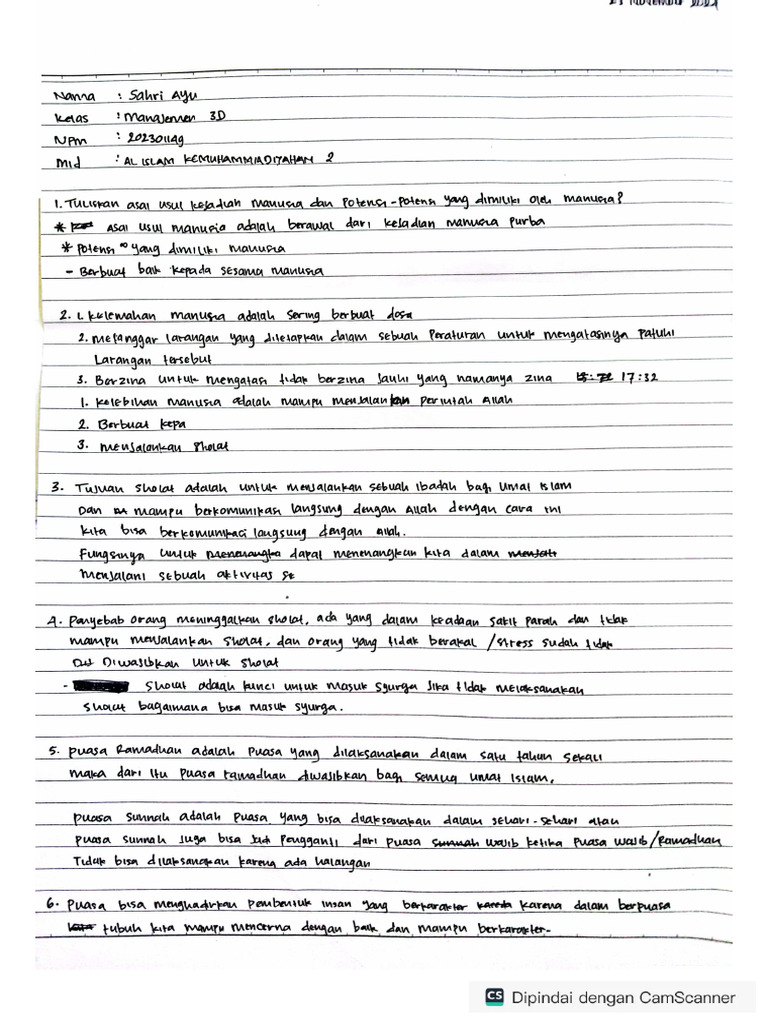 23 November 2024
Nama : Sahri Ayu
Kelas : Manajemen 3D
NPM : 202301149
Mid : AL ISLAM KEMUHAMMADIYAHAN 2
1. Tuliskan asal usul kejadian manusia dan Potensi-Potensi yang dimiliki oleh manusia?
* Asal usul manusia adalah berawal dari kejadian manusia Purba
* Potensi ∞ yang dimiliki manusia
- Berbuat baik kepada sesama manusia
2. 1. Kelemahan manusia adalah sering berbuat dosa
2. melanggar larangan yang ditetapkan dalam sebuah Peraturan untuk mengatasinya Patuhi
Larangan tersebut
3. Berzina untuk mengatasi tidak berzina Jauhi yang namanya zina 17:32
1. Kelebihan manusia adalah mampu menjalankan perintah Allah
2. Berbuat kepa
3. menjalankan sholat
3. Tujuan sholat adalah untuk menjalankan sebuah ibadah bagi umat Islam
Dan mampu berkomunikasi langsung dengan Allah dengan cara ini
Kita bisa berkomunikasi langsung dengan Allah.
Fungsinya untuk menenangka dapat menenangkan kita dalam
menjalani sebuah aktivitas se
4. Panyebab orang meninggalkan sholat, ada yang dalam keadaan sakit parah dan tidak
mampu menjalankan sholat, dan orang yang tidak berakal / stress sudah tidak
Diwajibkan untuk sholat
- Sholat adalah kunci untuk masuk syurga Jika tidak melaksanakan
sholat bagaimana bisa masuk syurga.
5. Puasa Ramadhan adalah Puasa yang dilaksanakan dalam satu tahun sekali
maka dari itu Puasa ramadhan diwajibkan bagi semua umat Islam.
Puasa sunnah adalah Puasa yang bisa dilaksanakan dalam sehari-sehari atau
Puasa sunnah Juga bisa Jadi Pengganti dari puasa sunnah wajib ketika Puasa wajib/Ramadhan
Tidak bisa dilaksanakan karena ada halangan
6. Puasa bisa menghadirkan Pembentuk insan yang berkarakter karena karena dalam berpuasa
tubuh kita mampu mencerna dengan baik dan mampu berkarakter-
CS Dipindai dengan CamScanner